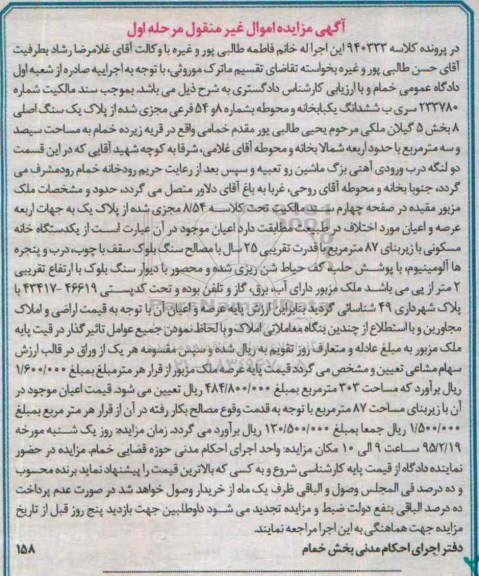 آگهی مزایده اموال غیر منقول مرحله اول
در پرونده کلاسه ۹۴۰۳۳۳ این اجرا له خانم فاطمه طالبی پور و غیره با وکالت آقای غلامرضا رشاد بطرفیت
آقای حسن طالبی پور و غیره بخواسته تقاضای تقسیم ماترک موروثی، با توجه به اجراییه صادره از شعبه اول
دادگاه عمومی خمام و با ارزیابی کارشناس دادگستری به شرح ذیل می باشد. بموجب سند مالکیت شماره
۲۳۳۷۸۰ سری ب ششدانگ یکبابخانه و محوطه بشماره ۸ و ۵۴ فرعی مجزی شده از پلاک یک سنگ اصلی
۸ بخش ۵ گیلان ملکی مرحوم یحیی طالبی پور مقدم خمامی واقع در قریه زیرده خمام به مساحت سیصد
و سه مترمربع با حدود اربعه شمالا بخانه و محوطه آقای غلامی، شرقا به کوچه شهید آقایی که در این قسمت
دو لنگه درب ورودی آهنی بزرگ ماشین رو تعبیه و سپس بعد از رعایت حریم رودخانه خمام رودمشرف می
گردد، جنوبا بخانه و محوطه آقای روحی، غربا به باغ آقای دلاور متصل می گردد، حدود و مشخصات ملک
مزبور مقیده در صفحه چهارم سند مالکیت تحت کلاسه ۸/۵۴ مجزی شده از پلاک یک به جهات اربعه
عرصه و اعیان مورد اختلاف در طبیعت مطابقت دارد اعیان موجود در آن عبارت است از یکدستگاه خانه
مسکونی با زیربنای ۸۷ مترمربع با قدرت تقریبی ۲۵ سال با مصالح سنگ بلوک سقف با چوب، درب و پنجره
ها آلومینیوم، با پوشش حلب، کف حیاط شن ریزی شده و محصور با دیوار سنگ بلوک با ارتفاع تقریبی
۲ متر از پی می باشد. ملک مزبور دارای آب، برق، گاز و تلفن بوده و تحت کدپستی ۴۶۶۱۹-۴۳۴۱۷ با
پلاک شهرداری ۴۹ شناسائی گردید بنابراین ارزش پایه عرصه و اعیان آن با توجه به قیمت اراضی و املاک
مجاورین و با استطلاع از چندین بنگاه معاملاتی املاک و با لحاظ نمودن جمیع عوامل تاثیر گذار در قیت پایه
ملک مزبور به مبلغ عادله و متعارف روز تقویم به ریال شده و سپس مقسومه هر یک از وراق در قالب ارزش
سهام مشاعی تعیین و مشخص می گردد قیمت پایه عرصه ملک مزبور از قرار هر مترمبلغ بمبلغ ۱/۶۰۰/۰۰۰
ریال برآورد که مساحت ۳۰۳ مترمربع بمبلغ ۴۸۴/۸۰۰/۰۰۰ ریال تعیین می شود. قیمت اعیان موجود در
آن با زیربنای مساحت ۸۷ مترمربع با توجه به قدمت وقوع مصالح بکار رفته در آن از قرار هر متر مربع بمبلغ
۱/۵۰۰/۰۰۰ ریال جمعا بمبلغ ۱۳۰/۵۰۰/۰۰۰ ریال برآورد می گردد. زمان مزایده: روز یک شنبه مورخه
۹۵/۲/۱۹ ساعت ۹ الی ۱۰ مکان مزایده: واحد اجرای احکام مدنی حوزه قضایی خمام. مزایده در حضور
نماینده دادگاه از قیمت پایه کارشناسی شروع و به کسی که بالاترین قیمت را پیشنهاد نماید برنده محسوب
و ده درصد فی المجلس وصول و الباقی ظرف یک ماه از خریدار وصول خواهد شد در صورت عدم پرداخت
ده درصد الباقی بنفع دولت ضبط و مزایده تجدید می شود. داوطلبین جهت بازدید پنج روز قبل از تاریخ
مزایده جهت هماهنگی به این اجرا مراجعه نمایند.
دفتر اجرای احکام مدنی بخش خمام
۱۵۸